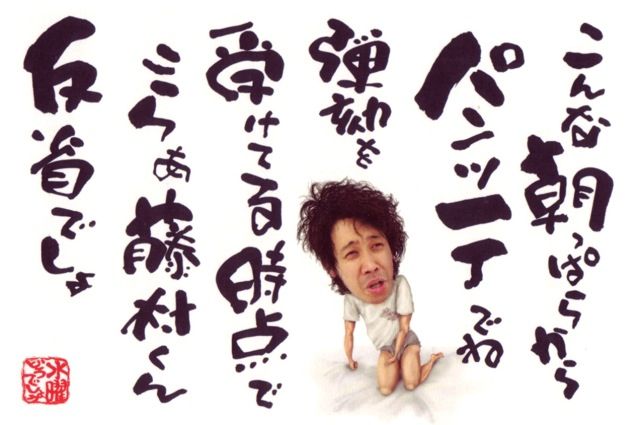 こんな朝っぱらから
パンツ一丁でね
弾劾を
受けてる時点で
こらぁ藤村くん
反省でしょ
水曜
どうでしょう